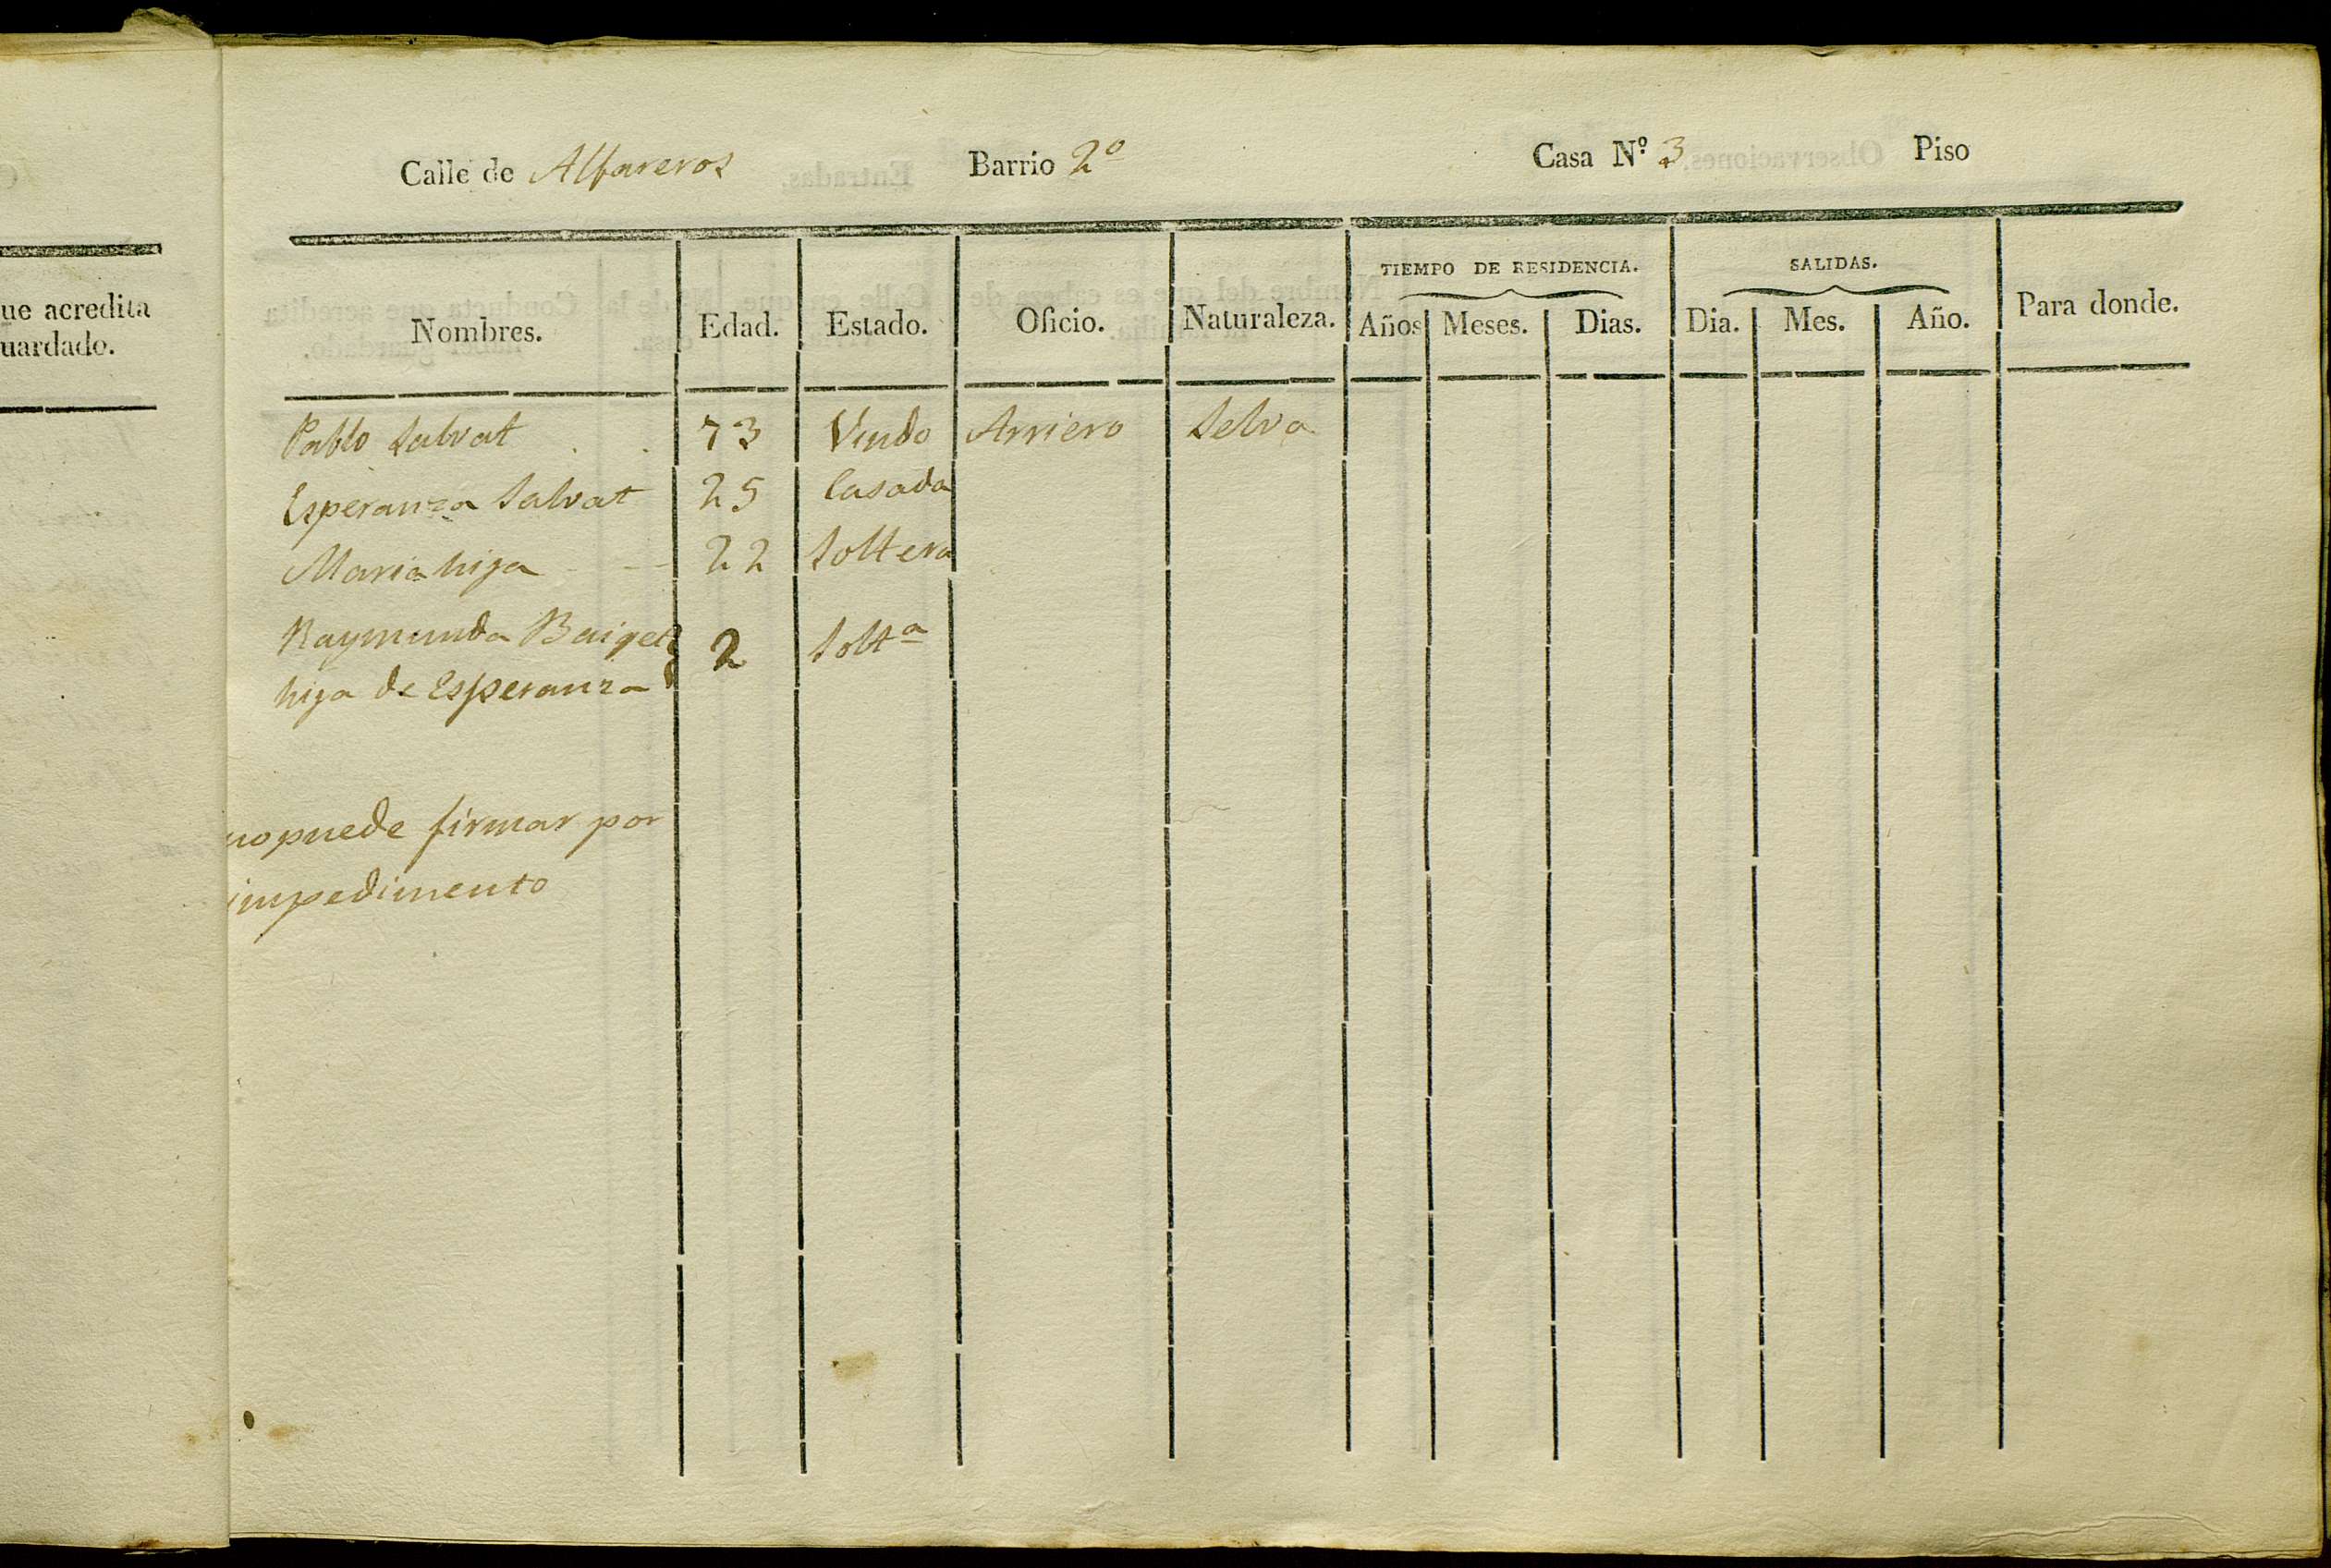 ue acredita
uardado.
Calle de Alfareros Barrio 2º Casa Nº 3 Piso
TIEMPO DE RESIDENCIA. SALIDAS.
Nombres. Edad. Estado. Oficio. Naturaleza. Años Meses. Dias. Dia. Mes. Año. Para donde.
Pablo Salvat 73 Viudo Arriero Selva
Esperanza Salvat 25 Casada
Maria hija 22 Soltera
Raymunda Baiget 2 Soltª
hija de Esperanza
no puede firmar por
impedimento